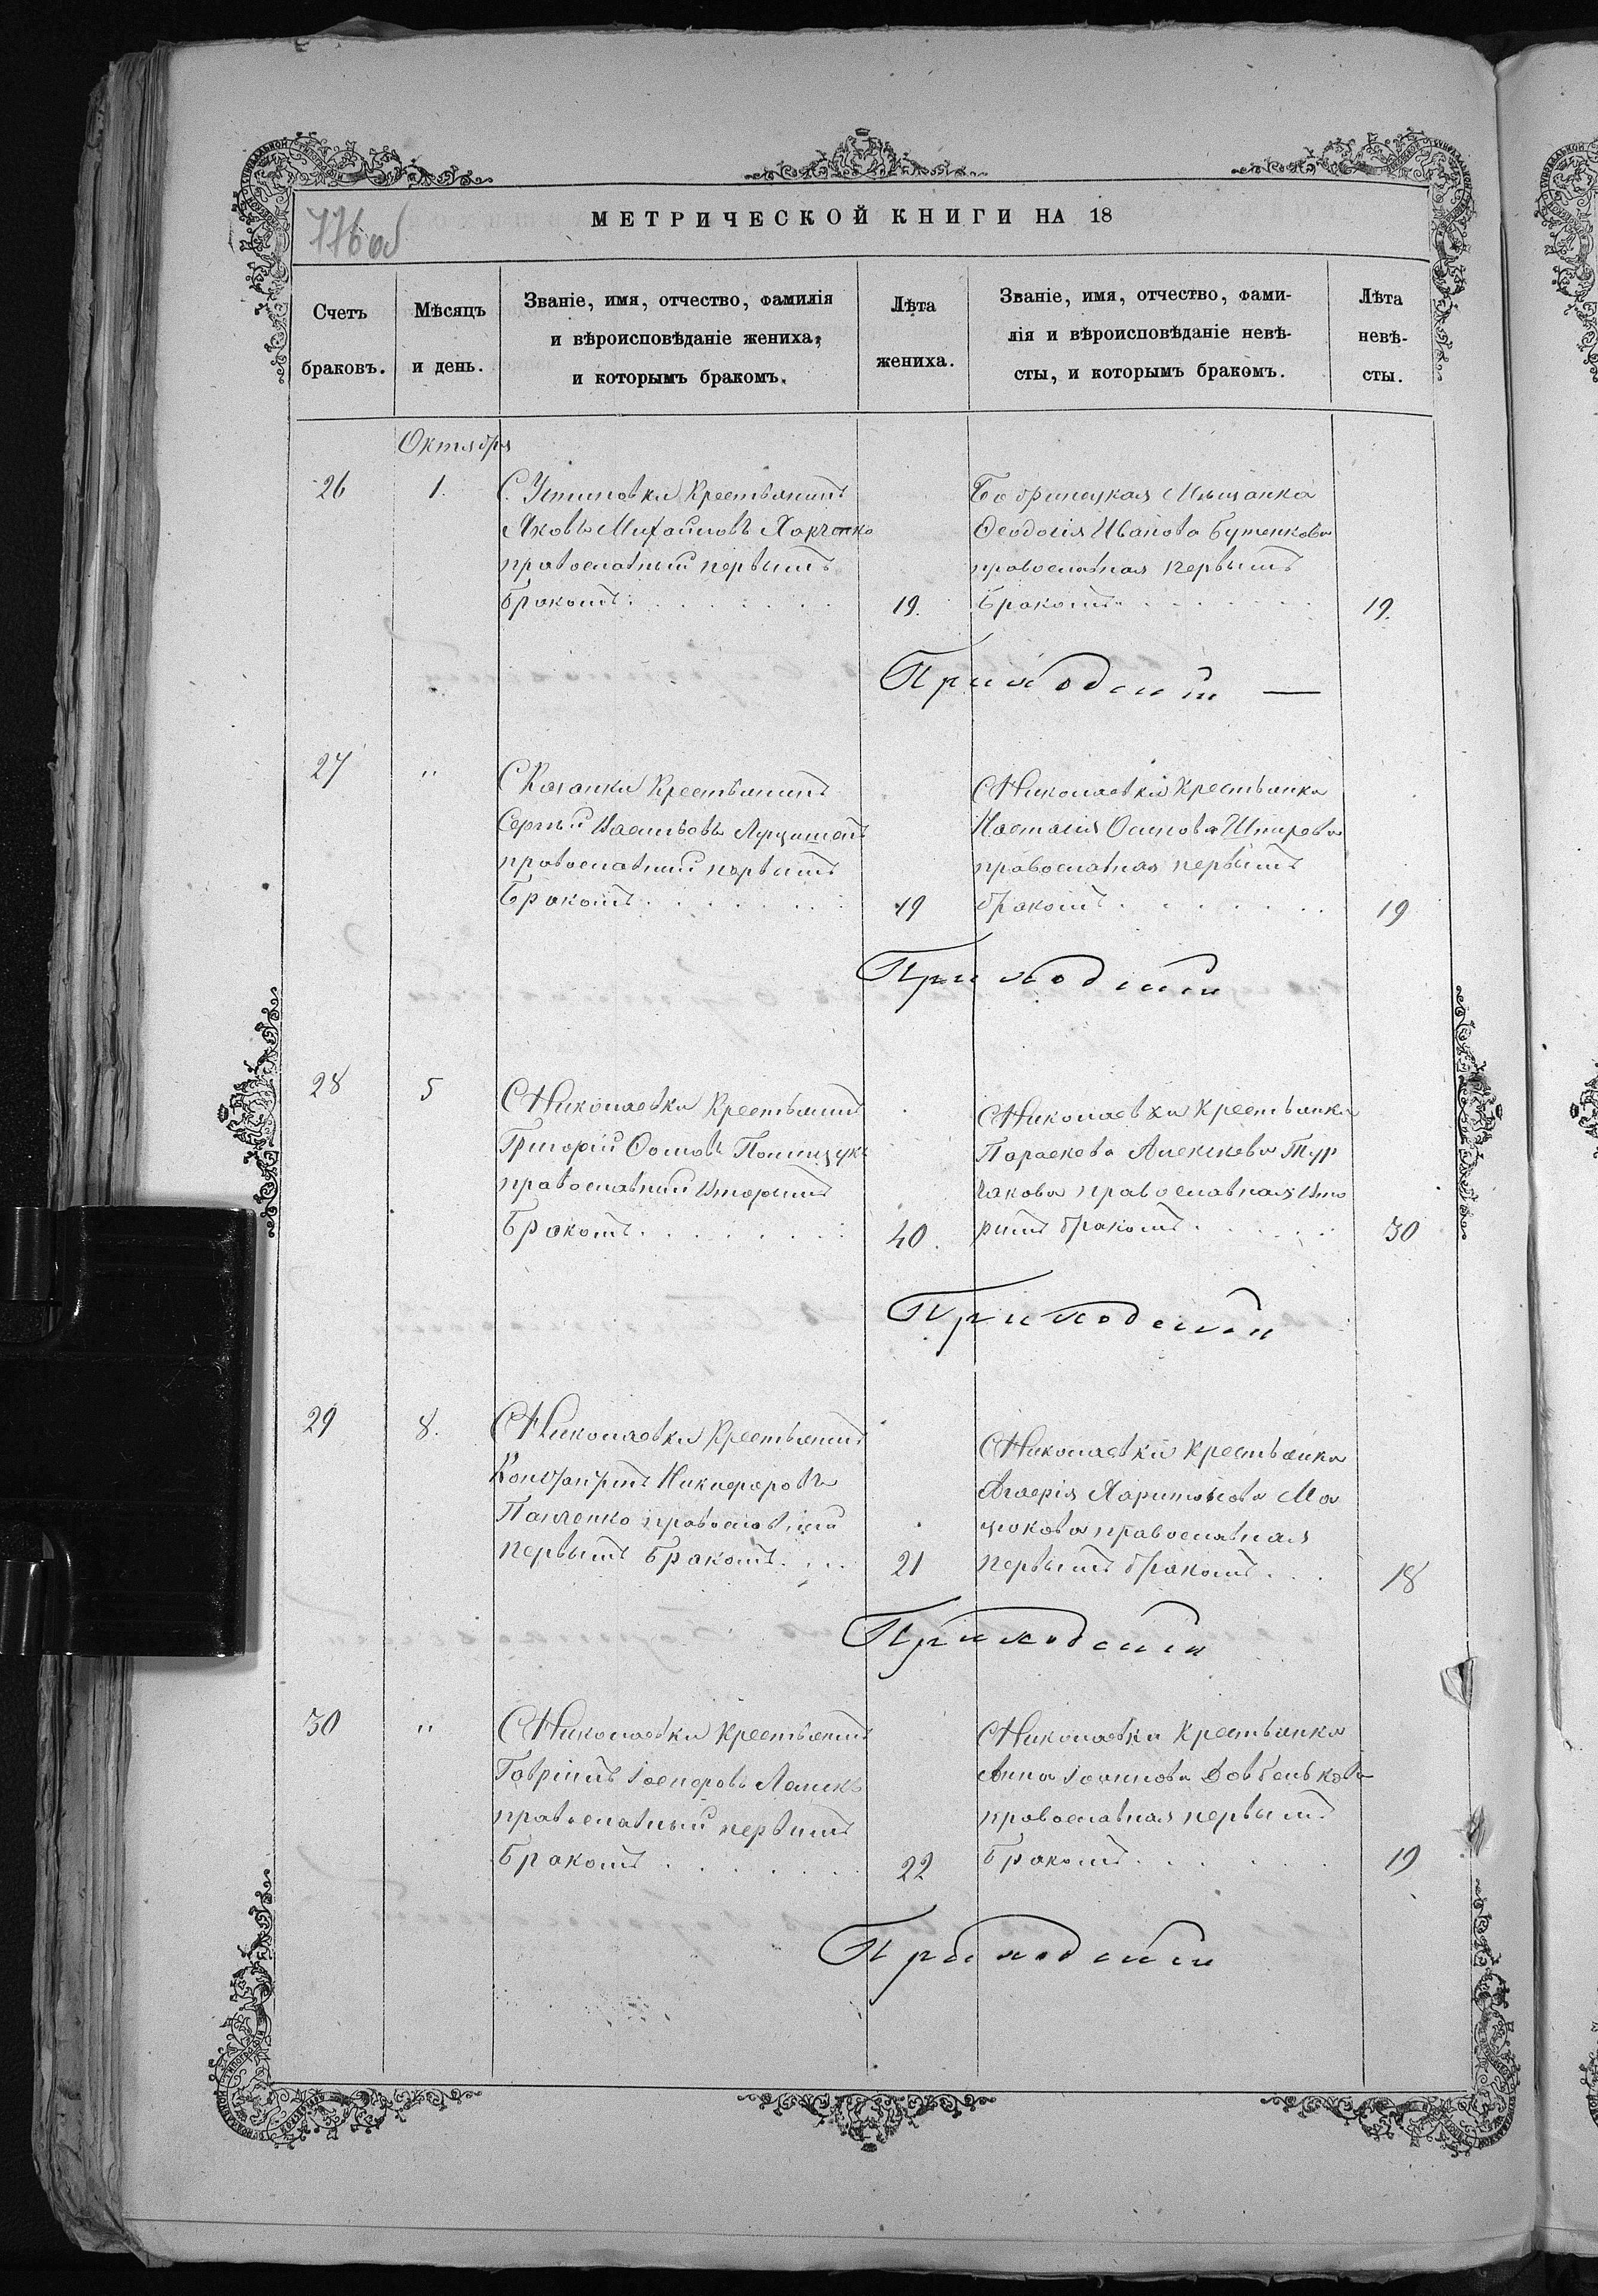 776об
МЕТРИЧЕСКОЙ КНИГИ НА 18
Счетъ браковъ.
Мѣсяцъ и день.
Званіе, имя, отчество, фамилія
и вѣроисповѣданіе жениха,
и которымъ бракомъ.
Лѣта жениха.
Званіе, имя, отчество, фами-
лія и вѣроисповѣданіе невѣ-
сты, и которымъ бракомъ.
Лѣта невѣ-
сты.
Октября
26
1.
С. Устиновки Крестьянинъ
Яковъ Михайловъ Харченко
православный первымъ
бракомъ
19.
Бобринецкая Мѣщанка
Ѳеодосія Иванова Бутенкова
православная первымъ
бракомъ
19.
Приходскіи
27
"
С Казанки Крестьянинъ
Сергѣй Васильевъ
православный первымъ
бракомъ
19
С Николаевки Крестьянка
Осипова
православная первымъ
бракомъ
19
Приходскіи
28
5
С Николаевки Крестьянинъ
Григорій Полищукъ
православный вторымъ
бракомъ
40.
С Николаевки Крестьянка
Параскева Алексѣева Тур
чакова православная вто
рымъ бракомъ
30
Приходскіи
29
8.
С Николаевки Крестьянинъ
Константинъ Никифоровъ
Панченко православный
первымъ бракомъ
21
С Николаевки Крестьянка
Харитонова Ма
цюкова православная
первымъ бракомъ
18
Приходскіи
30
"
С Николаевки Крестьянинъ
Гавріилъ Іосифовъ
православный первымъ
бракомъ
22
С Николаевки Крестьянка
Анна Іоаннова Довбенькова
православная первымъ
бракомъ
19
Приходскіи